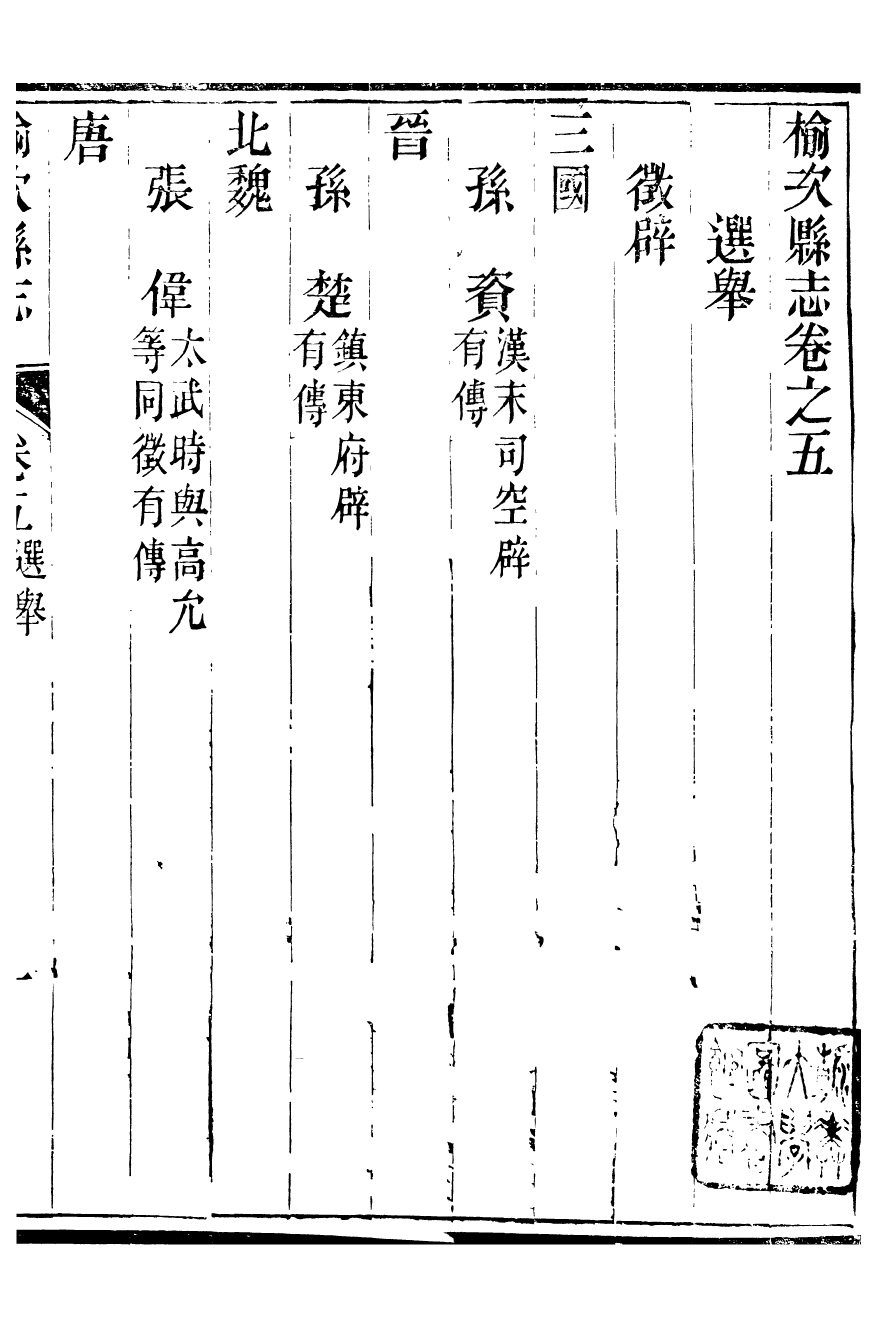 榆次縣志卷之五
選舉
徵辟
三國
孫 資 漢末司空辟
有傳
晉
孫 楚 鎮東府辟
有傳
北魏
張 偉 太武時與高允
等同徵有傳
唐
榆次縣志 卷五 選舉 一